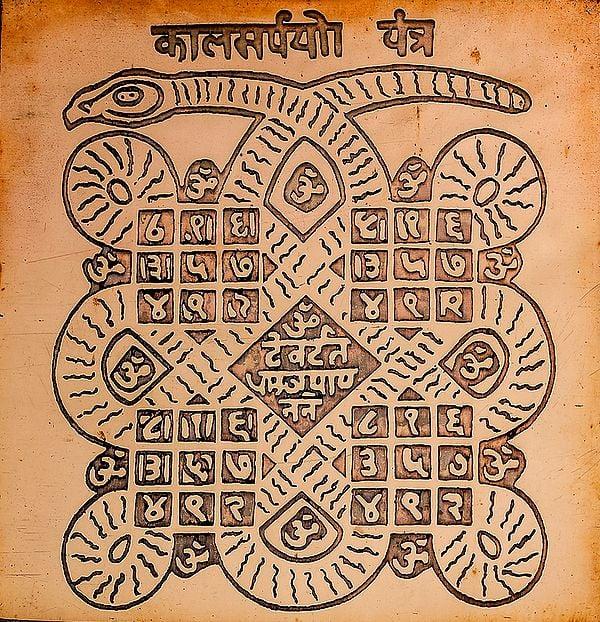 कालसर्पयोग यंत्र
ॐ ॐ ॐ
८ १ ६ ८ १ ६
ॐ ३ ५ ७ ३ ५ ७ ॐ
४ ९ २ ४ ९ २
ॐ
ॐ ॐ
८ १ ६ ८ १ ६
ॐ ३ ५ ७ ३ ५ ७ ॐ
४ ९ २ ४ ९ २
ॐ
ॐ ॐ